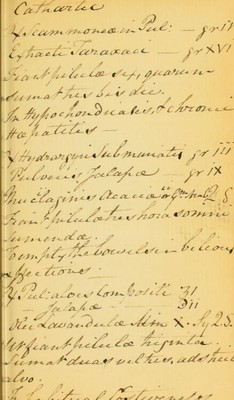 Cathartic
℞ Scammoneæ in Pul: — gr ii
Extracti Taraxaci — gr XVI
Fiant pilulæ sex, quarum
sumat his bis die.
In Hypochondriasis, & chronic
Hepatitis —
℞ Hydrargyri Submuriatis gr iii
Pulveris Jalapæ — gr ix
Mucilagines Acaciæ
Fiant pilulæ tres hora somni
sumendæ.
To empty the bowels in bilious
affections.
℞ Pul: aloes Compositi ʒi
— Jalapæ — ℈ii
Olei Lavandulæ Min X. Sy q.S.
ut fiant pilulæ triginta.
Sumat duas vel tres, adstricta
alvo.
In habitual Costiveness